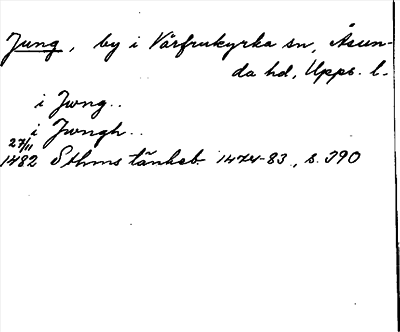 Jung, by i Vårfrukyrka sn, Åsun-
da hd, Upps. l.
i Jwng..
i Jwngh..
27/11
1482 Sthms tänkeb. 1474-83, s. 390